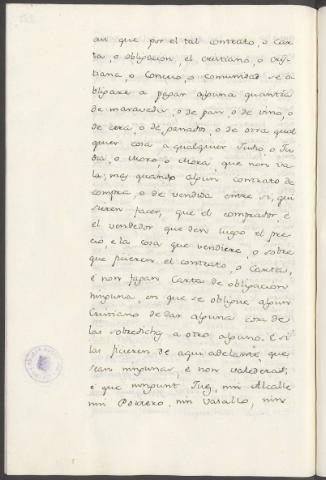 aui que por el tal contrato, o Car
ta, o obligacion, el cristiano, o cris
tiana, o Concejo, o comunidad se o
bligare a pagar alguna quantia
de maravedis, o de pan, o de vino, o
de cera, o de ganados, o de otra qual
quier cosa a qualquier Judio, o Ju
dia, o Moro, o Mora, que non va
la; mas quando algun contrato de
compra, o de vendida entre si, qui
sieren facer, que el comprador, e
el vendedor que den luego el pre
cio, e la cosa que vendiere, o sobre
que fuere el contrato, o Cartas,
e non fagan Carta de obligacion
ninguna, en que se obligue algun
Cristiano de dar alguna cosa de
las sobredichas a otro alguno. E si
las ficieren de aqui adelante, que
sean ningunas, e non valederas;
e que ningunt Juez, nin Alcalle
nin Portero, nin Vasallo, nin